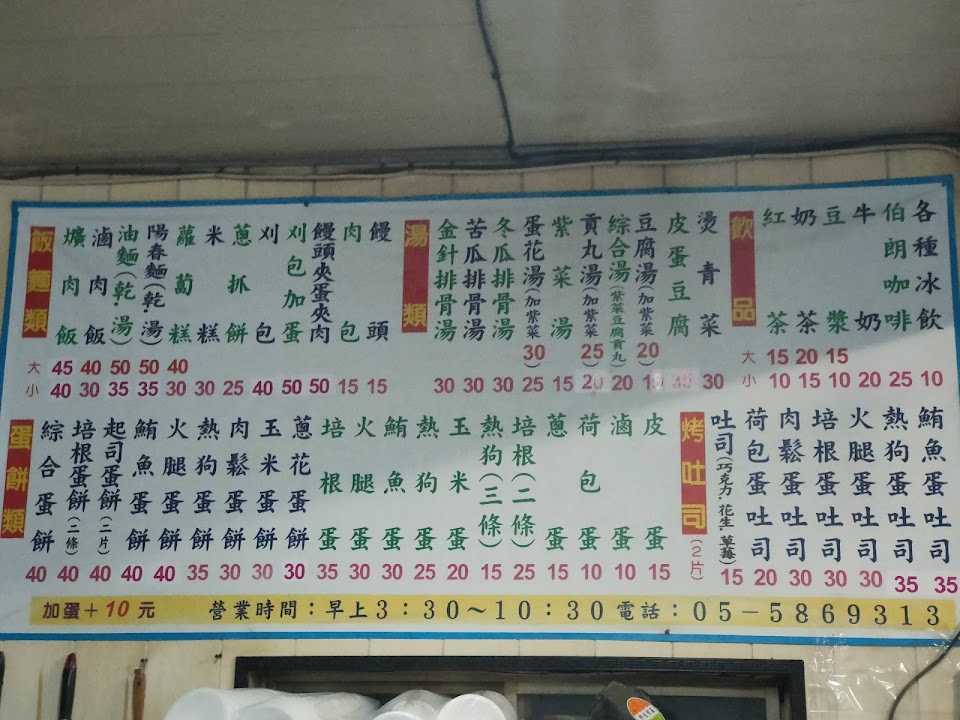 飯麵類
爌肉飯
滷肉飯
油麵(乾.湯)
陽春麵(乾.湯)
蘿蔔糕
米糕
蔥抓餅
刈包
刈包加蛋
饅頭夾蛋夾肉
肉包
饅頭
大 45 40 50 50 40
小 40 30 35 35 30 30 25 40 50 50 15 15
湯類
金針排骨湯
苦瓜排骨湯
冬瓜排骨湯
蛋花湯(加紫菜30)
紫菜湯
貢丸湯(加紫菜25)
綜合湯(紫菜豆腐貢丸)
豆腐湯(加紫菜20)
皮蛋豆腐
燙青菜
30 30 30 25 15 20 20 10 35 30
飲品
紅茶
奶茶
豆漿
牛奶
伯朗咖啡
各種冰飲
大 15 20 15
小 10 15 10 20 25 10
蛋餅類
綜合蛋餅
培根蛋餅(二條)
起司蛋餅(二片)
鮪魚蛋餅
火腿蛋餅
熱狗蛋餅
肉鬆蛋餅
玉米蛋餅
蔥花蛋餅
培根蛋
火腿蛋
鮪魚蛋
熱狗蛋
玉米蛋
熱狗(三條)
培根(二條)
蔥蛋
荷包蛋
滷蛋
皮蛋
40 40 40 40 40 35 30 30 30 35 30 30 25 20 15 25 15 10 10 15
烤吐司(2片)
吐司(巧克力.花生.草莓)
荷包蛋吐司
肉鬆蛋吐司
培根蛋吐司
火腿蛋吐司
熱狗蛋吐司
鮪魚蛋吐司
15 20 30 30 30 35 35
加蛋+10元 營業時間：早上3：30～10：30 電話：05－5869313